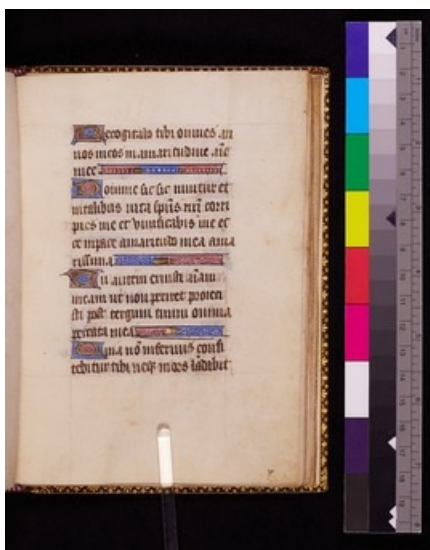 Recogitabo tibi omnes an
nos meos in amaritudine aīe
mee
Domine si sic uiuitur et
in talibus uita spūs mei corri
pies me et uiuificabis me et
ce in pace amaritudo mea ama
rissima
Tu autem eruisti aīam
meam ut non periret proieci
sti post tergum tuum omnia
peccata mea
Quia nō infernus confi
tebitur tibi neqz mors laudabit